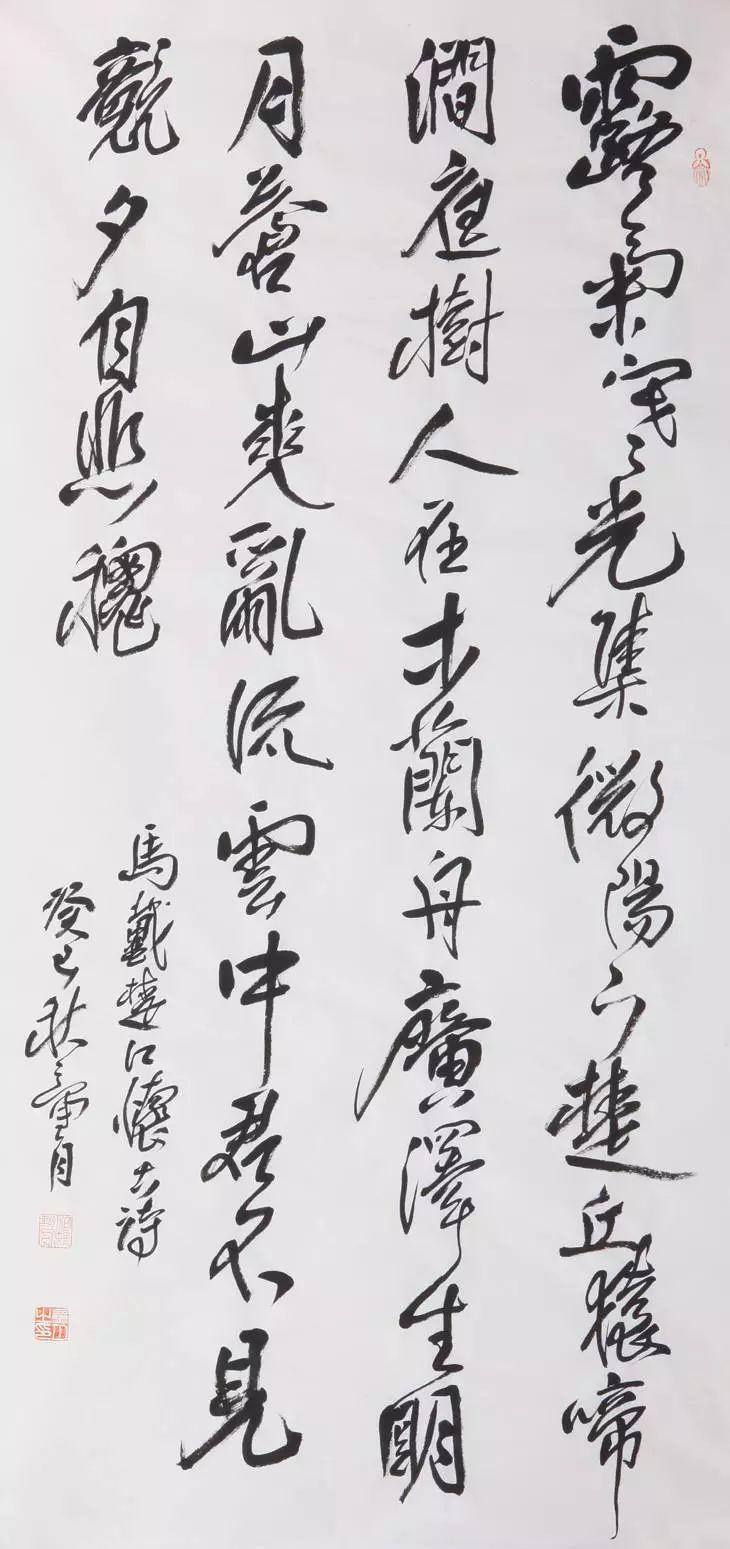 露氣寒光集微陽下楚丘猿啼
澗庭樹人在木蘭舟廣澤生明
月蒼山夾亂流雲中君不見
競夕自悲穐
馬戴楚江懷古詩
癸巳秋童月